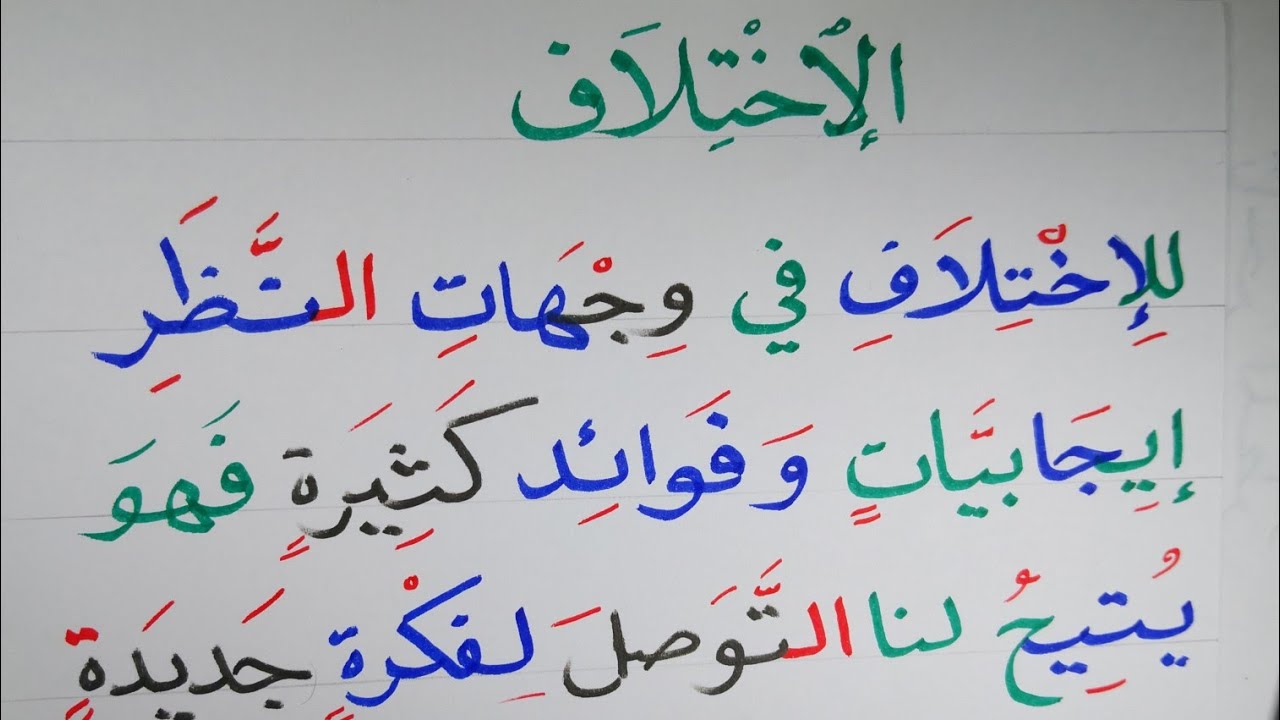 الإْخْتِلاَف
لِلإِخْتِلاَفِ في وِجْهَاتِ النَّظَرِ
إِيجَابيَّاتٍ وَفَوَائِد كَثِيَرةٍ فَهوَ
يُتِيحُ لنا التَّوَصلَ لِفكْرةٍ جَديَدةٍ